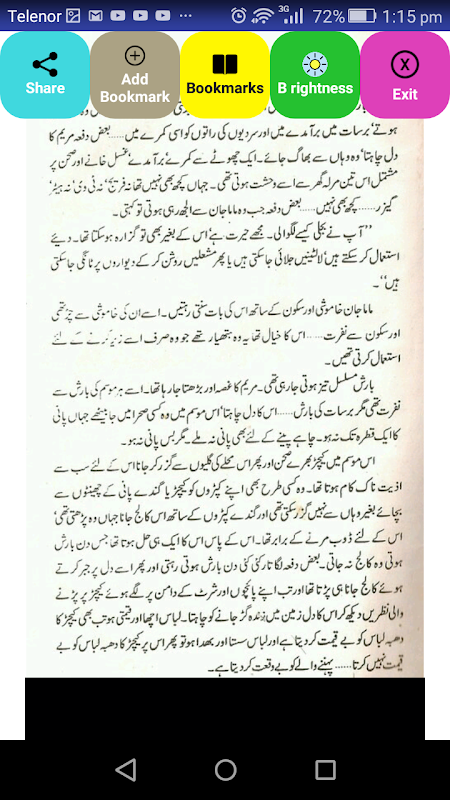 Telenor
72%
1:15 pm
3G
Share
Add
Bookmark
Bookmarks
B rightness
Exit
ہوتے‘ برسات میں برآمدے میں اور سردیوں کی راتوں کو اسی کمرے میں...... بعض دفعہ مریم کا
دل چاہتا‘ وہ وہاں سے بھاگ جائے۔ ایک چھوٹے سے کمرے‘ برآمدے‘ غسل خانے اور صحن پر
مشتمل اس تین مرلہ گھر سے اسے وحشت ہوتی تھی۔ جہاں کچھ بھی نہیں تھا نہ فریج‘ نہ ٹی وی‘ نہ ہیٹر‘
گیزر...... کچھ بھی نہیں...... بعض دفعہ جب وہ ماما جان سے الجھ رہی ہوتی تو کہتی۔
’’آپ نے بجلی کیسے لگوالی۔ مجھے حیرت ہے‘ اس کے بغیر بھی تو گزارہ ہوسکتا تھا۔ دیے
استعمال کرسکتے ہیں‘ لالٹینیں جلائی جاسکتی ہیں یا پھر مشعلیں روشن کرکے دیواروں پر ٹانگی جاسکتی
ہیں‘‘۔
ماما جان خاموشی اور سکون کے ساتھ اس کی بات سنتی رہتیں۔ اسے ان کی خاموشی سے چڑ تھی
اور سکون سے نفرت...... اس کا خیال تھا یہ وہ ہتھیار تھے جو وہ صرف اسے زیر کرنے کے لئے
استعمال کرتی تھیں۔
بارش مسلسل تیز ہوتی جارہی تھی۔ مریم کا غصہ اور بڑھتا جارہا تھا۔ اسے ہر موسم کی بارش سے
نفرت تھی مگر برسات کی بارش...... اس کا دل چاہتا‘ اس موسم میں وہ کسی صحرا میں جا بیٹھے جہاں پانی
کا ایک قطرہ تک نہ ہو۔ چاہے پینے کے لئے بھی پانی نہ ملے۔ مگر بس پانی نہ ہو۔
اس موسم میں کیچڑ بھرے صحن اور پھر اس محلے کی گلیوں سے گزر کر جانا اس کے لئے سب سے
اذیت ناک کام ہوتا تھا۔ وہ کسی طرح بھی اپنے کپڑوں کو کیچڑ یا گندے پانی کے چھینٹوں سے
بچائے بغیر وہاں سے نہیں گزر سکتی تھی اور گندے کپڑوں کے ساتھ اس کالج جانا جہاں وہ پڑھتی تھی‘
اس کے لئے ڈوب مرنے کے برابر تھا۔ اس کے پاس اس کا ایک ہی حل ہوتا تھا جس دن بارش
ہوتی وہ کالج نہ جاتی۔ بعض دفعہ لگاتار کئی کئی دن بارش ہوتی رہتی اور پھر اسے دل پر جبر کرتے
ہوئے کالج جانا ہی پڑتا تھا اور تب اپنے پائنچوں اور شرٹ کے دامن پر لگے ہوئے کیچڑ پر پڑنے
والی نظریں دیکھ کر اس کا دل زمین میں زندہ گڑ جانے کو چاہتا۔ لباس اچھا اور قیمتی ہو تب بھی کیچڑ کا
دھبہ لباس کو بے قیمت کردیتا ہے اور لباس سستا اور بھدا ہو تو پھر اس پر کیچڑ کا دھبہ لباس کو بے
قیمت نہیں کرتا...... پہننے والے کو بے وقعت کردیتا ہے۔